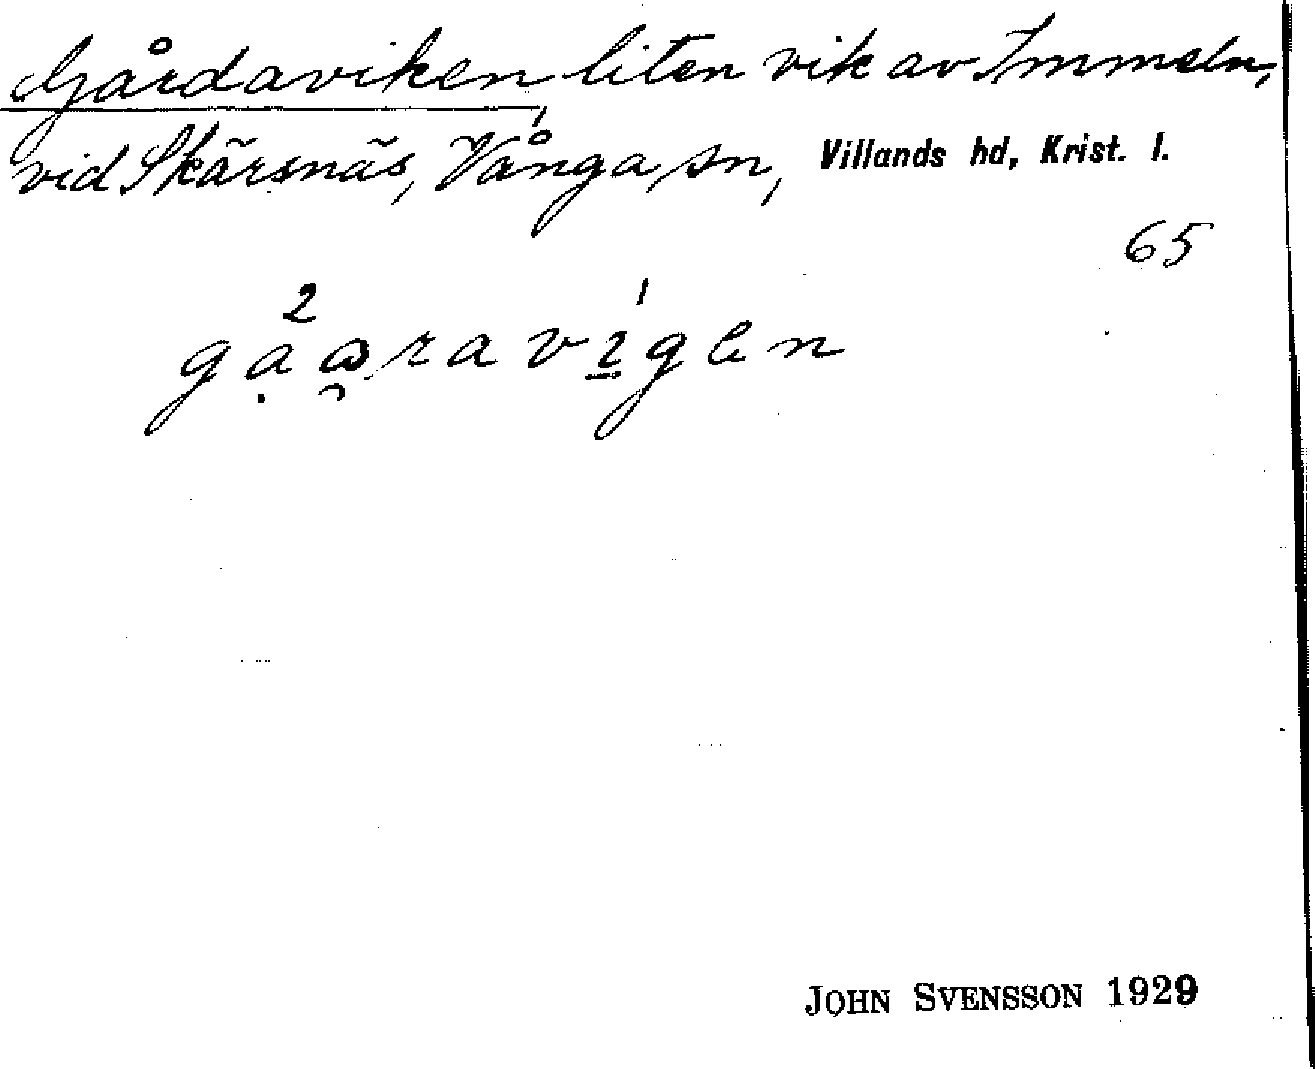 Gårdaviken, liten vik av Immeln,
vid Skärsnäs, Vånga sn, Villands hd, Krist. l.
65
2 1
gaaravigen
JOHN SVENSSON 1929